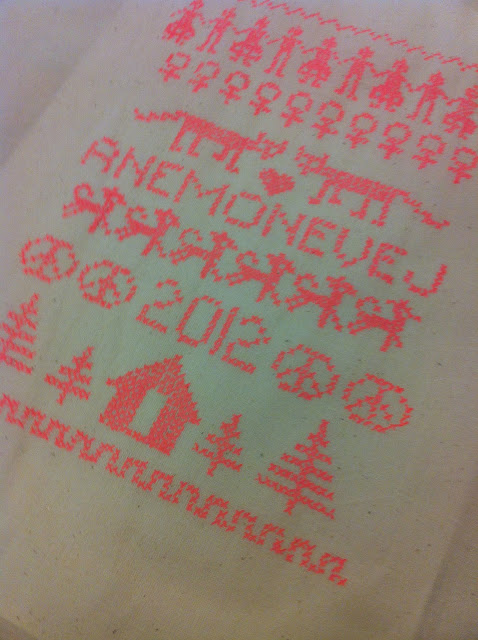 ANEMONEVEJ
2012